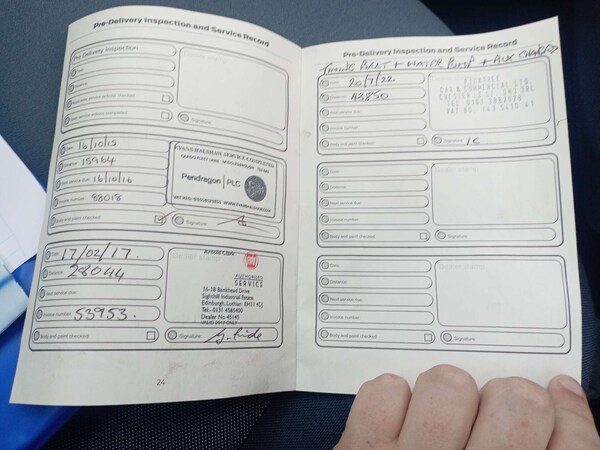 Pre-Delivery Inspection and Service Record
Pre Delivery Inspection
Signature:
Date: 16/10/15
Distance: 15964
Next service due: 16/10/16
Invoice number: 88018
Body and paint checked:
SERVICE COMPLETED
Pendragon PLC
Signature:
Date: 17/02/17.
Distance: 28044
Next service due:
Invoice number: 53953.
Body and paint checked:
Arnold Clark
FIAT
AUTHORISED
SERVICE
16-18 Bankhead Drive
Sighthill Industrial Estate
Edinburgh, Lothian EH11 4DJ
Tel: 0131 4580400
Dealer No 45145
Signature:
24
Pre-Delivery Inspection and Service Record
TIMING BELT + WATER PUMP + AUX CHANGED
Date: 20/7/22
Distance: 43850
Next service due:
Invoice number:
Body and paint checked:
Signature:
Date:
Distance:
Next service due:
Invoice number:
Body and paint checked:
Signature:
Date:
Distance:
Next service due:
Invoice number:
Body and paint checked:
Signature: